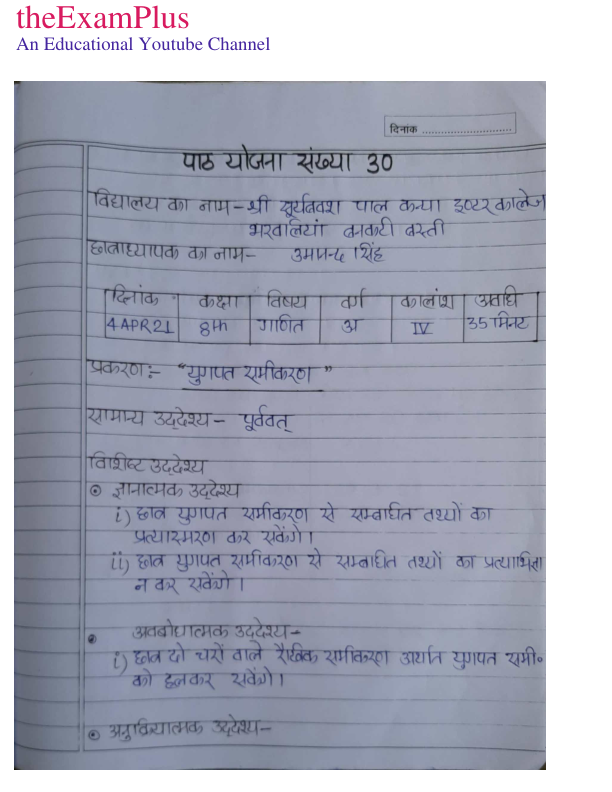 theExamPlus
An Educational Youtube Channel
दिनांक
पाठ योजना संख्या 30
विद्यालय का नाम - श्री सूर्यबवश पाल कन्या इण्टर कालेज
भरवालियां बनकटी बस्ती
छात्राध्यापक का नाम - सिंह
दिनांक कक्षा विषय वर्ग कालांश अवधि
4 APR 21 8th गणित अ IV 35 मिनट
प्रकरण :- "युगपत समीकरण"
सामान्य उद्देश्य - पूर्ववत्
विशिष्ट उद्देश्य
ज्ञानात्मक उद्देश्य
i) छात्र युगपत समीकरण से सम्बाधित तथ्यों का
प्रत्यास्मरण कर सकेंगे।
ii) छात्र युगपत समीकरण से सम्बाधित तथ्यों का प्रत्याभिज्ञा
न कर सकेंगे।
अवबोधात्मक उद्देश्य -
i) छात्र दो चरों वाले रैखिक समीकरण अर्थात युगपत समी०
को हल कर सकेंगे।
अनुप्रयोगात्मक उद्देश्य -